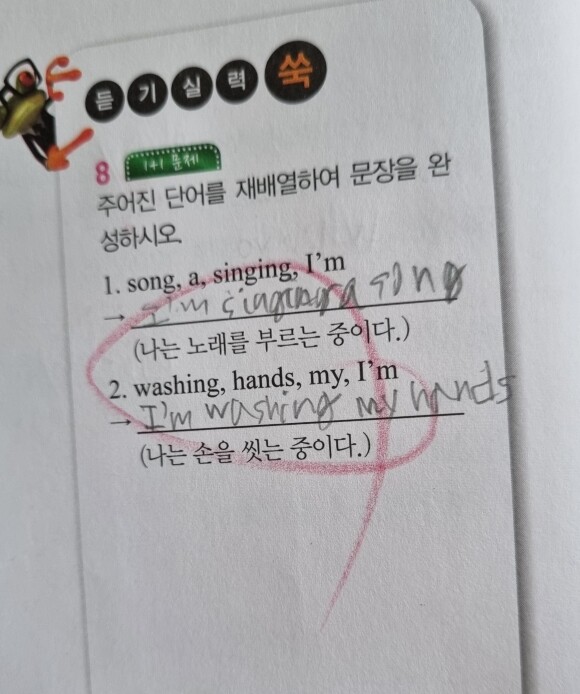 듣기실력 쑥
8 1+1 문제
주어진 단어를 재배열하여 문장을 완
성하시오.
1. song, a, singing, I'm
→ I'm singing a song
(나는 노래를 부르는 중이다.)
2. washing, hands, my, I'm
→ I'm washing my hands
(나는 손을 씻는 중이다.)